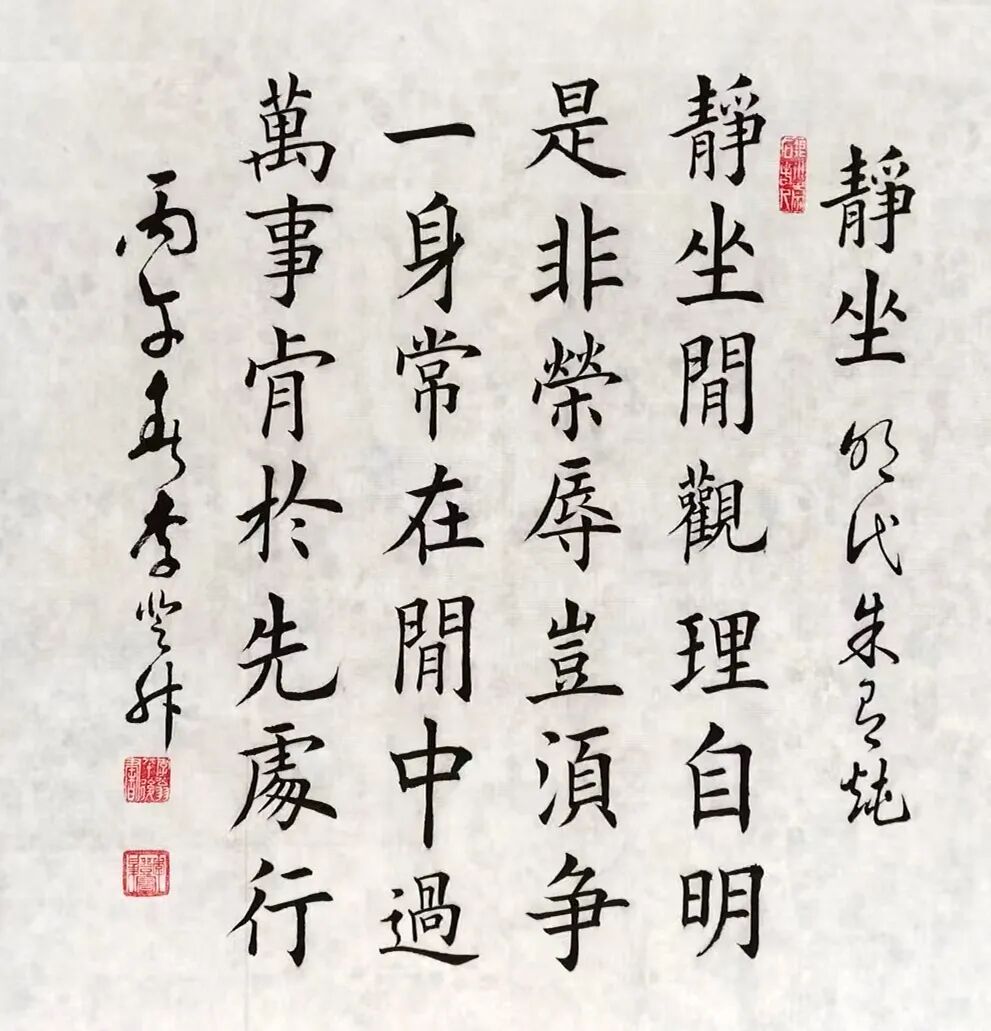 靜坐 明代朱有炖
靜坐閒觀理自明
是非榮辱豈湏争
一身常在閒中過
萬事肯於先處行
丙午春李